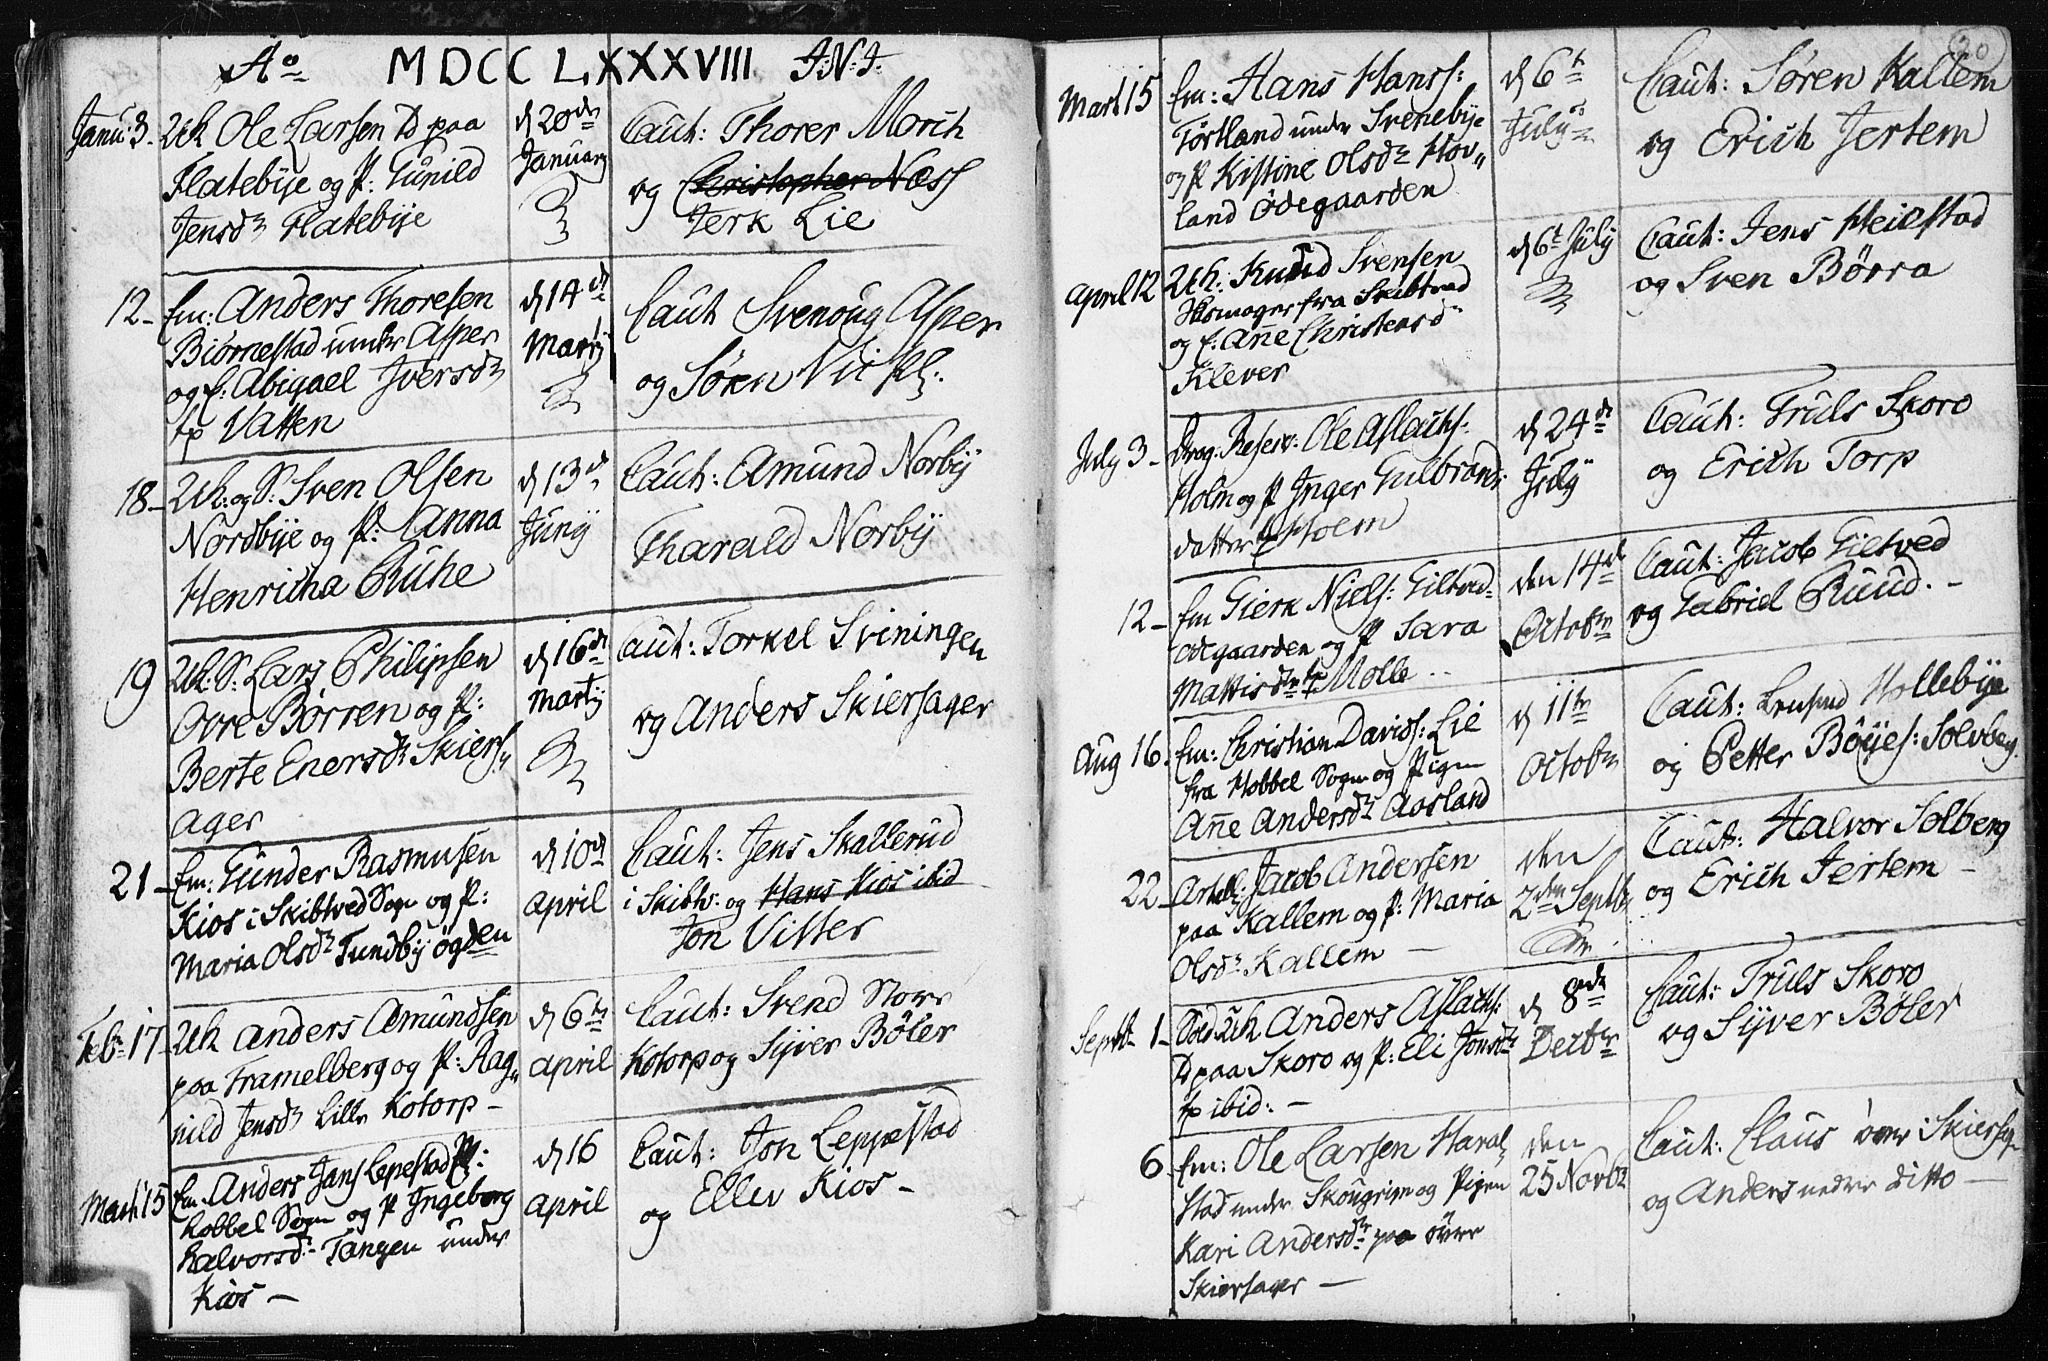 Aº MDCCLXXXVIII J:N:J.
Janu: 3. Uk Ole Larsen tp paa
Flatebÿe og P: Gunild
Jensdr Flatebÿe
d 20de
January
Caut: Thorer Morch
og Christopher Næss
Jerk Lie
12 - Em: Anders Thoresen
Biörnestad under Asper
og E: Abigael Iversdr
tp Vatten
d 14de
Martÿ
Caut Svenoug Asper
og Sören Vick
18 - Uk: og S: Sven Olsen
Nordbÿe og P: Anna
Henricha Ruhe
d 13de
Junÿ
Caut: Amund Norbÿ
Tharald Norbÿ
19 Uk. S: Lars Philipsen
Ovre Börren og P:
Berte Enersdr Skiers,,
ager
d 16de
Martÿ
Caut: Torkel Sviningen
og Anders Skiersager
21 - Em: Gunder Rasmusen
Kios i Skibtved Sogn og P:
Maria Olsdr Tundbÿ ögden
d 10de
April
Caut: Jens Skallerud
i Skibtv: og Hans Kios ibid
Jon Vister
Febr: 17 - Uk Anders Amundsen
paa Framelberg og P: Rag,,
nild Jensdr Lille Kotorp -
d 6te
April
Caut: Svend Store
Kotorp og Sÿver Böler
Mart: 15 Em: Anders Jans Lepestad
Hobbel Sogn og P Ingeborg
Halvorsdr Tangen under
Kios -
d 16
April
Caut: Jon Leppestad
og Ellev Kios -
20
Mart 15 Em: Hans Hanss:
Torkland under Svenebÿe
og P Kistine Olsdr Hov,,
land Ödegaarden
d 6t
Julÿ
Caut: Sören Kallem
og Erich Jertem
April 12 Uk: Knud Svensen
fra Skibtved
og E: Añe Christensdr
Klever
d 6t Julÿ
Caut: Jens Heilstad
og Sven Börra
July 3 - Drag: Reserv: Ole Aslachs:
Holm og P Inger Gulbrands
datter tp Holm
d 24de
Julÿ
Caut: Truls Skoro
og Erich Torp
12 - Em Gierk Niels: Giltved
ödegaarden og P Sara
Mattisdtr tp Molle
den 14de
Octobr
Caut: Jacob Gieltved
og Gabriel Ruud. -
Aug 16. Em: Christian Davids: Lie
fra Hobbel Sogn og Pigen
Añe Andersdr Aasland
d 11te
Octobr
Caut: Hollebÿe
og Petter Böÿes: Solvberg.
22 - Artell: Jacob Andersen
paa Kallem og P: Maria
Olsdr Kallem -
den
2den Septb
Caut: Halvor Solberg
og Erich Jertem -
Septb 1 - Sold Uk Anders Aslachs:
tp paa Skoro og P: Eli Jonsdr
tp ibid: -
d 8de
Decbr
Caut: Truls Skoro
og Sÿver Böler
6 - Em: Ole Larsen Haral,,
stad under Skougrim og Pigen
Kari Andersdr paa övre
Skiersager -
den
25 Novbr
Caut: Claus övre Skiersager
og Anders nedre ditto -